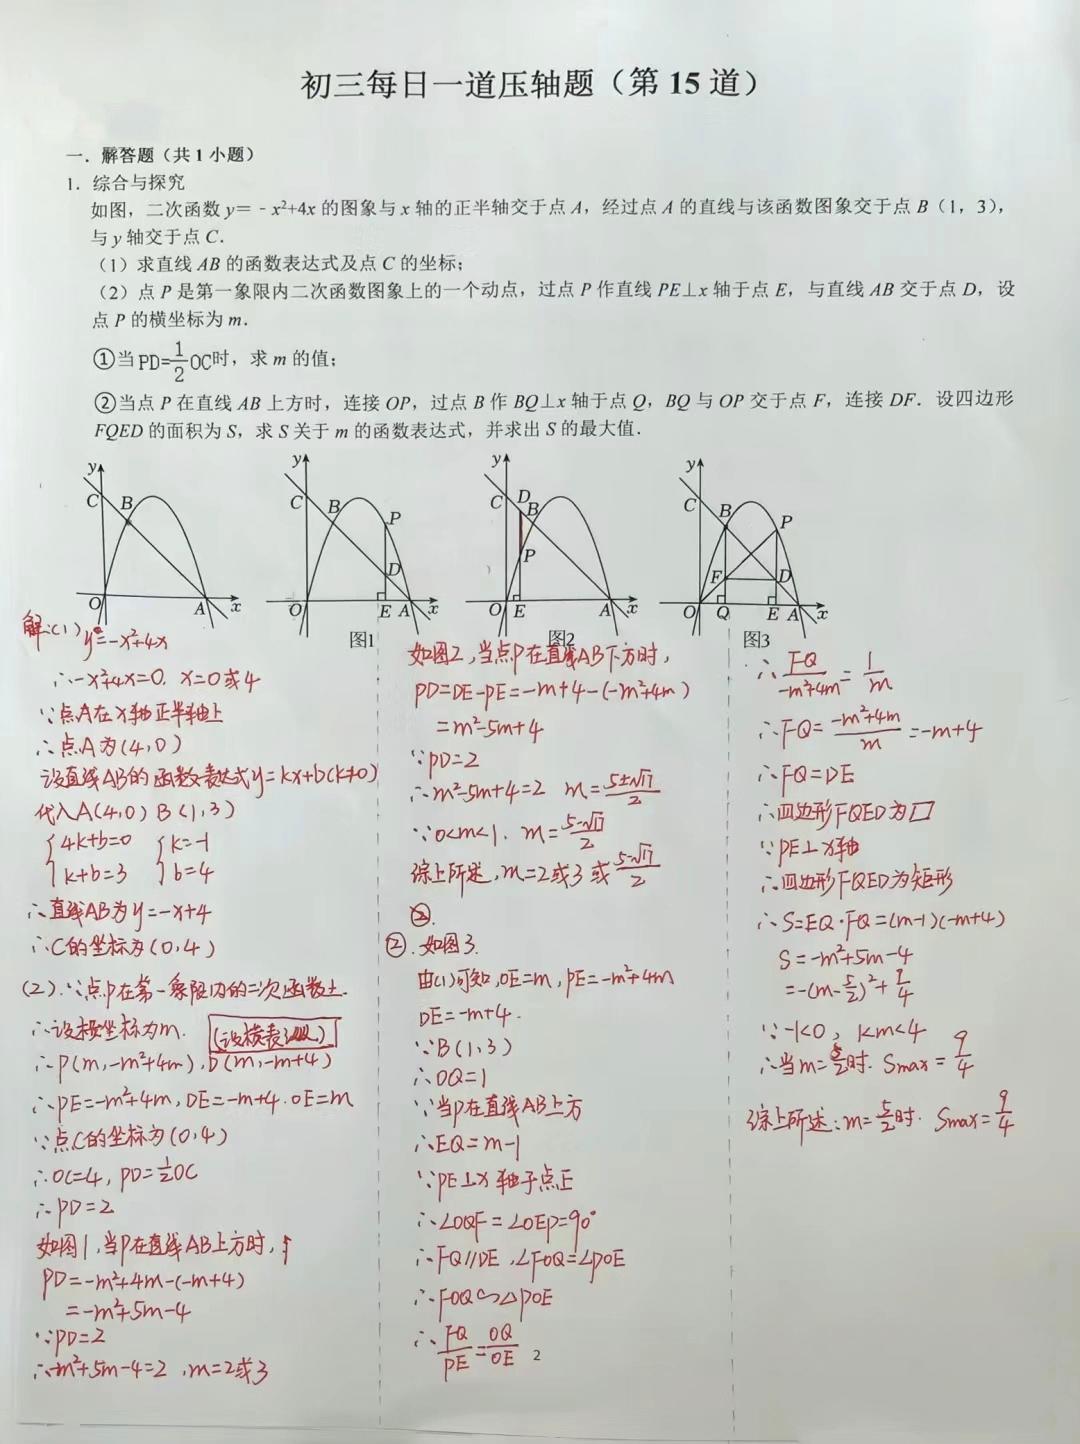 初三每日一道压轴题（第 15 道）
一．解答题（共 1 小题）
1．综合与探究
如图，二次函数 y＝﹣x²+4x 的图象与 x 轴的正半轴交于点 A，经过点 A 的直线与该函数图象交于点 B（1，3），
与 y 轴交于点 C．
（1）求直线 AB 的函数表达式及点 C 的坐标；
（2）点 P 是第一象限内二次函数图象上的一个动点，过点 P 作直线 PE⊥x 轴于点 E，与直线 AB 交于点 D，设
点 P 的横坐标为 m．
①当PD=1/2 OC时，求 m 的值；
②当点 P 在直线 AB 上方时，连接 OP，过点 B 作 BQ⊥x 轴于点 Q，BQ 与 OP 交于点 F，连接 DF．设四边形
FQED 的面积为 S，求 S 关于 m 的函数表达式，并求出 S 的最大值．
y C B O A x
y C B P D O E A x
图1
y C D B P O E A x
图2
y C B P F D O Q E A x
图3
解:(1) y=-x²+4x
∴-x²+4x=0. x=0或4
∵点A在x轴正半轴上
∴点A为(4,0)
设直线AB的函数表达式y=kx+b(k≠0)
代入A(4,0) B(1,3)
{4k+b=0 {k=-1
k+b=3 b=4
∴直线AB为y=-x+4
∴C的坐标为(0,4)
(2).∵点P在第一象限内的二次函数上.
∴设横坐标为m.
∴P(m,-m²+4m),D(m,-m+4)
∴PE=-m²+4m,DE=-m+4.OE=m
∵点C的坐标为(0,4)
∴OC=4, PD=1/2OC
∴PD=2
如图1,当P在直线AB上方时,
PD=-m²+4m-(-m+4)
=-m²+5m-4
∵PD=2
∴-m²+5m-4=2 ,m=2或3
如图2,当点P在直线AB下方时,
PD=DE-PE=-m+4-(-m²+4m)
=m²-5m+4
∵PD=2
∴m²-5m+4=2 m=(5±√17)/2
∵0<m<1. m=(5-√17)/2
综上所述,m=2或3或(5-√17)/2
②.
②.如图3.
由(1)可知,OE=m,PE=-m²+4m
DE=-m+4.
∵B(1,3)
∴OQ=1
∵当P在直线AB上方
∴EQ=m-1
∵PE⊥X轴于点E
∴∠OQF=∠OEP=90°
∴FQ//DE,∠FOQ=∠POE
∴FOQ∽△POE
∴FQ/PE=OQ/OE
2
∴FQ/(-m²+4m)=1/m
∴FQ=(-m²+4m)/m=-m+4
∴FQ=DE
∴四边形FQED为▱
∵PE⊥X轴
∴四边形FQED为矩形
∴S=EQ·FQ=(m-1)(-m+4)
S=-m²+5m-4
=-(m-5/2)²+9/4
∵-1<0, 1<m<4
∴当m=5/2时. Smax=9/4
综上所述:m=5/2时. Smax=9/4